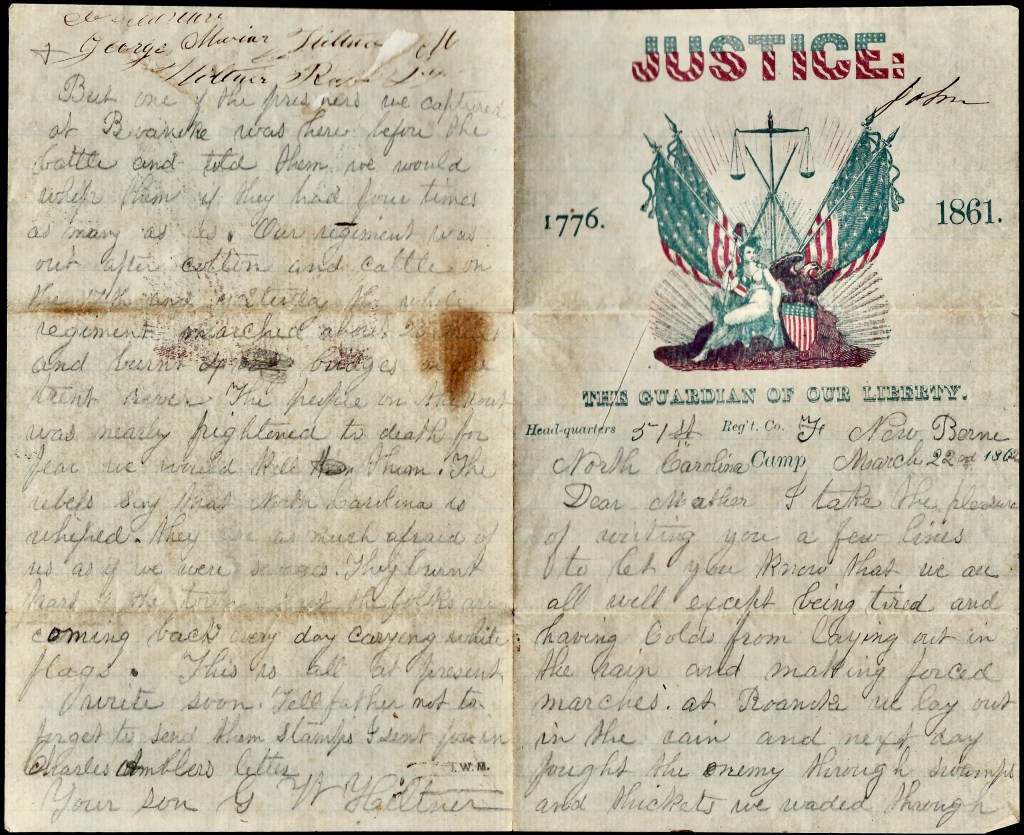 George
But one of the prisners we captured
at Roanoke was here before the
battle and told them we would
whip them if they had four times
as many as us. Our regiment was
out after cotton and cattle on
the and the whole
regiment marched above
and burnt 4 bridges on the
trent river The people on the
was nearly frightened to death for
fear we would kill them. The
rebels say that North Carolina is
whiped. they are as much afraid of
us as if we were savages. They burnt
part of the the folks are
coming back every day carying white
flags. This is all at present
write soon. Tell father not to
forget to send them stamps I sent for in
Charles Amblers letter
T.W.M.
Your son G W Hiltner
JUSTICE:
John
1776.
1861.
THE GUARDIAN OF OUR LIBERTY.
Head-quarters 51st Reg't. Co. F New Berne
North Carolina Camp March 22nd 1862
Dear Mother I take the pleasure
of writing you a few lines
to let you know that we are
all well except being tired and
having Colds from laying out in
the rain and making forced
marches. at Roanoke we lay out
in the rain and next day
fought the enemy through swamps
and thickets we waded through